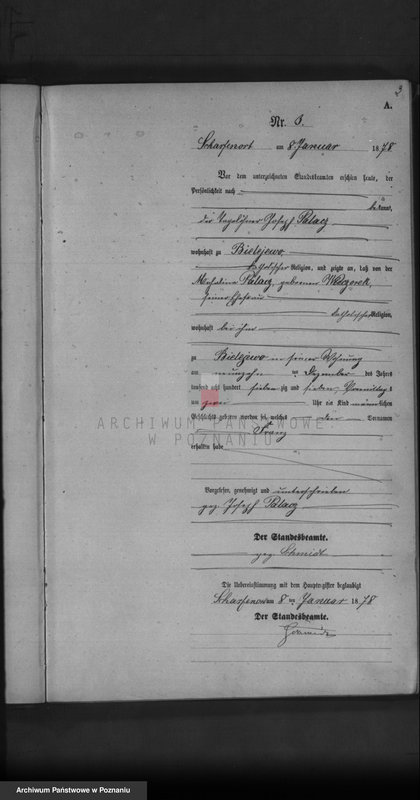 3
A.
Nr. 3.
Scharfenort am 8 Januar 1878
Vor dem unterzeichneten Standesbeamten erschien heute, der
Persönlichkeit nach
bekannt,
der Tagelöhner Joseph Palacz
wohnhaft zu Bielejewo
katholischer Religion, und zeigte an, daß von der
Michalina Palacz, geborenen
seiner Ehefrau
katholischer Religion,
wohnhaft bei ihm
zu Bielejewo in seiner Wohnung
am neunzehn ten Dezember des Jahres
tausend acht hundert sieben zig und sieben Vormittags
um zwei Uhr ein Kind männlichen
Geschlechts geboren worden sei, welches den Vornamen
Franz
erhalten habe
Vorgelesen, genehmigt und unterschrieben
gez. Joseph Palacz
Der Standesbeamte.
gez. Schmidt
Die Uebereinstimmung mit dem Hauptregister beglaubigt
Scharfenort am 8 ten Januar 1878
Der Standesbeamte.
ARCHIWUM PAŃSTWOWE
W POZNANIU
Archiwum Państwowe w Poznaniu